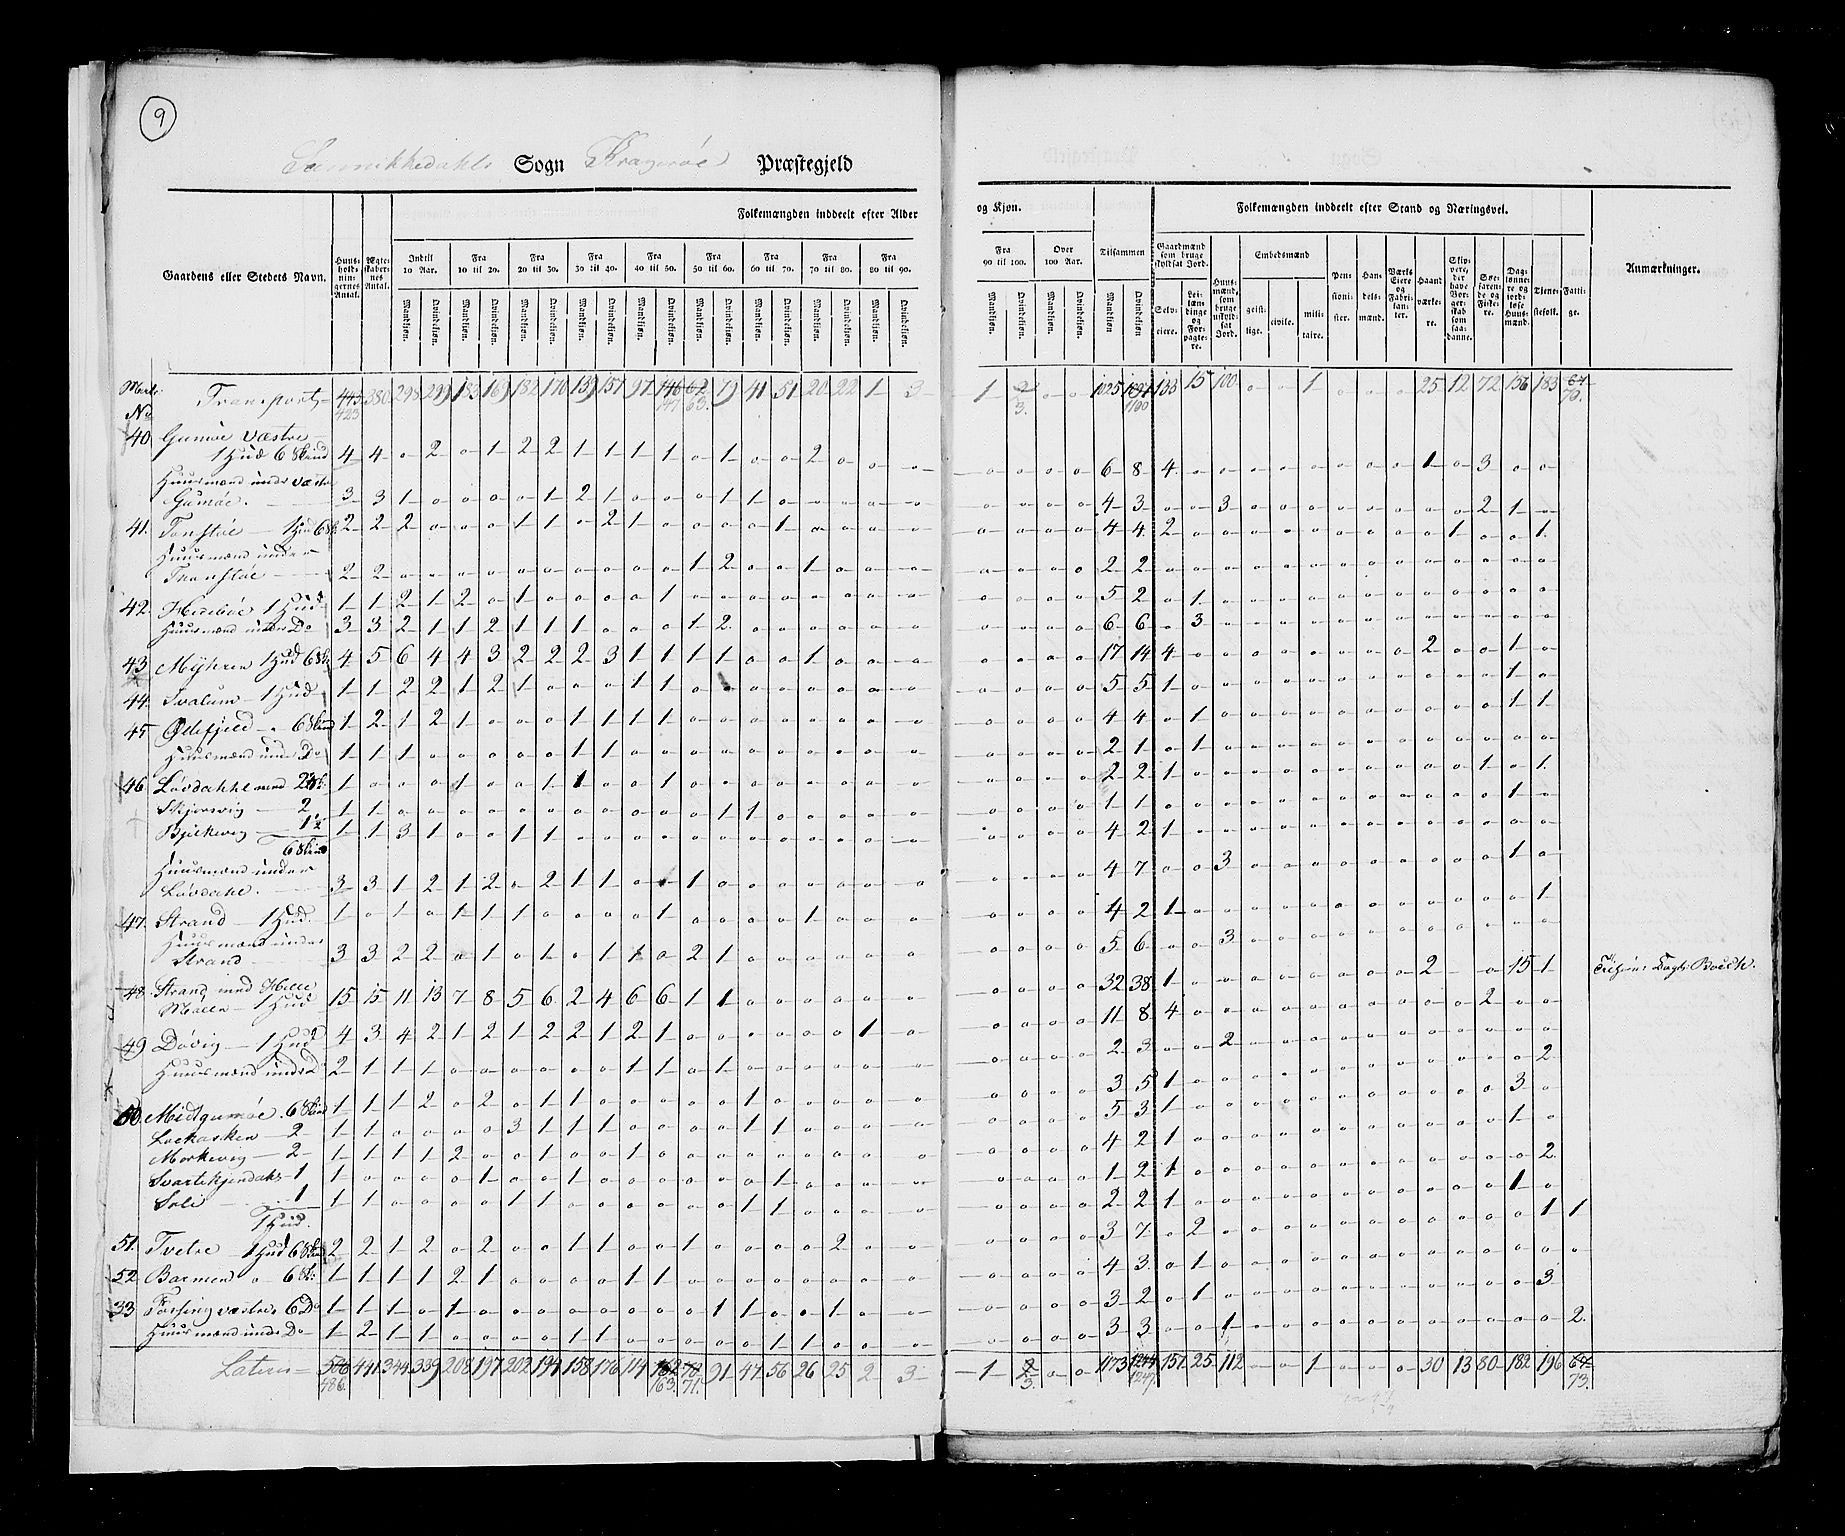 9
Sannikedahls Sogn Kragerøe Præstegjeld
Gaardens eller Stedets Navn. Huusholdningernes Antal. Ægteskabernes Antal. Folkemængden inddeelt efter Alder og Kjøn. Tilsammen Folkemængden inddeelt efter Stand og Næringsvei. Anmærkninger.
Indtil 10 Aar. Fra 10 til 20. Fra 20 til 30. Fra 30 til 40. Fra 40 til 50. Fra 50 til 60. Fra 60 til 70. Fra 70 til 80. Fra 80 til 90. Fra 90 til 100. Over 100
Mandkjøn. Qvindekjøn.
Gaardmænd som bruge skyldsat Jord. Selveiere. Leilændinge og Forpagtere. Huusmænd, som bruge uskyldsat Jord. Embedsmænd geistlige. civile. militaire. Pensionister. Handelsmænd. Værks Eiere og Fabrikanter. Haandværkere. Skippere, der have Borgerskab som saadanne. Søefarende og Fiskere. Daglønnere og jordløse Huusmænd. Tjenestefolk. Fattige.
Matr. No Transport 443 423 380 298 299 183 169 182 176 139 157 97 146 147 62 63. 79 41 51 20 22 1 3 1 2 3. o o 1025 1097 1100 133 15 100 o o 1 o o o 25 12 72 156 183 67 70.
40 Gumøe Væstre
1 Hud 6 Skind 4 4 o 2 o 1 2 2 1 1 1 1 o 1 o o 2 o o o o o o o 6 8 4 o o o o o o o o 1 o 3 o o
Huusmænd under Væstre
Gumøe. 3 3 1 o o o o 1 2 1 o o o 1 1 o o o o o o o o o 4 3 o o 3 o o o o o o o o 2 1 o
41. Tonstøe 1 Hud 6 Sk. 2 2 2 o o o 1 1 o 2 1 o o o o 1 o o o o o o o o 4 4 2 o o o o o o o o o 1 o o 1.
Huusmænd under
Tronstøe 2 2 o o o o o o o o o o 1 2 o o 1 o o o o o o o 2 2
42. Hedebøe 1 Hud 1 1 2 1 2 o 1 o o o o 1 o o o o o o o o o o o o 5 2 o 1
Huusmænd under Do 3 3 2 1 1 2 1 1 1 o o o 1 2 o o o o o o o o o o 6 6 o 3
43 Myhren 1 Hud 6 Sk. 4 5 6 4 4 3 2 2 2 3 1 1 1 1 o o 1 o o o o o o o 17 14 4 o o o o o o o o 2 o o 1 o
44. Svalum 1 Hud 1 1 2 2 1 2 1 o o o 1 1 o o o o o o o o o o o o 5 5 1 o o o o o o o o o o o 1 o
45 Øllefjeld 6 Skind 1 2 1 2 1 o o o 1 1 1 1 o o o o o o o o o o o o 4 4 o 1 o o o o o o o o o o 1 1
Huusmænd under Do 1 1 1 o o o o o 1 1 o o o o o o o o o o o o o o 2 1 o 1
46 Løvdahl med 2½ Sk. 1 o o o 1 o o 1 1 o o 1 o o o o o o o o o o o o 2 2 1 o o o o o o o o o o 1 o 1
Skjørsvig 2 1 1 o o o o o o o o o o o 1 1 o o o o o o o o o 1 1 o o o o o o o o o o o o 1 o
Bjelkevig 1½ 1 1 3 1 o o 1 1 o o o o o o o o o o o o o o o o 4 2 1
6 Skind
Huusmænd under
Løvdahl. 3 3 1 2 1 2 o 2 1 1 o o 1 o o o o o o o o o o o 4 7 o o 3 o o o o o o o o o 1 o
47. Strand 1 Hud. 1 o 1 o 1 1 1 o o o o 1 o o o o 1 o o o o o o o 4 2 1 o o o o o o o o o o o o 1
Huusmænd under
Strand 3 3 2 2 o 1 o 1 o 1 1 o 2 1 o o o o o o o o o o 5 6 o o 3
48. Strand med Helle
Moelln 1 Hud 15 15 11 13 7 8 5 6 2 4 6 6 1 1 o o o o o o o o o o 32 38 1 o o o o o o o o 2 o 15 1
49 Døvig 1 Hud 4 3 4 2 1 2 1 2 2 1 2 1 o o o o o o 1 o o o o o 11 8 4 o o o o o o o o o o 2 o o
Huusmænd under Do 2 1 1 1 o o o o o o 1 1 o 1 o o o o o o o o o o 2 3 o o 2 o o o o o o o o o o 2
50. Midtgumøe. 6 Skind 1 1 1 2 o 2 o 1 1 o o o o o 1 o o o o o o o o o 3 5 1 o o o o o o o o o o o 3 o
Lockasken 2 1 1 o o o o 3 1 1 1 o o o o 1 1 o o o o o o o o 5 3 1 o o o o o o o o o o o 1 o
Morkevig 2 1 1 1 1 2 o o 1 o o 1 o o o o o o o o o o o o o 4 2 1 o o o o o o o o o o o o 2
Svartekjendahl 1 1 o o o o 1 o 1 o o o o o o o 1 o o o o o o o o 1 2 1
Sole 1 1 1 o o o o 1 1 o o o o o o 1 1 o o o o o o o o 2 2 1 o o o o o o o o o o o 1 o
1 Hud.
51. Tveten 1 Hud 6 Skind 2 2 1 2 o 2 o o 1 1 o o 1 o o o o 2 o o o o o o 3 7 o 2 o o o o o o o o o o o 1 1
52 Barmen o 6 Sk. 1 1 1 1 2 1 o o o o 1 1 o o o o o o o o o o o o 4 3 o 1
53 Fossing væstre 6 Do 1 1 1 o 1 o o o o o o o o 1 1 o o 1 o o o o o o 3 2 o 1 o o o o o o o o o o o 3
Huusmænd under Do 1 2 1 1 o o o o 1 1 o o o o o 1 1 o o o o o o o 3 3 o o 1 o o o o o o o o o o o 2
Latus 506 486. 441 344 339 208 197 202 194 158 176 114 162 163. 70 71. 91 47 56 26 25 2 3 1 2 3. o o 1173 1244 1247 157 25 112 o o 1 o o o 30 13 80 182 196 67 73.